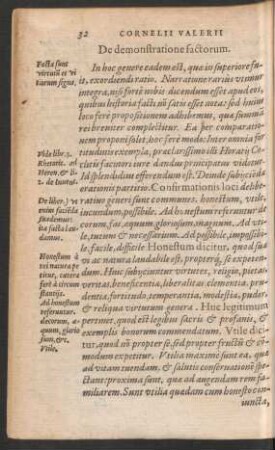 32 CORNELII VALERII
De demonstratione factorum.
Facta sunt
virtutū et vi
tiorum signa.
In hoc genere eadem est, quæ in superiore fu-
it, exordiendi ratio. Narratione rariùs vtimur
integra, nisi fortè nobis dicendum esset apud eos,
quibus historia facti nō satis esset nota: sed huius
loco ferè propositionem adhibemus, quæ summā
rei breuiter complectitur. Ea per comparatio-
nem proponi solet, hoc ferè modo: Inter omnia for
titudinis exempla, præclarissimo illi Horatij Co
clitis facinori iure dandus principatus videtur.
Id splendidius efferendum est. Deinde subijciēda
Vide libr. 3.
Rhetoric. ad
Heren. & li.
2. de Inuent.
orationis partitio. Confirmationis loci debibe-
ratiuo generi sunt communes, honestum, vtile,
iucundum, possibile. Ad honestum referuntur de
corum, fas, æquum, gloriosum, mos, lex. Ad vti-
le, tutum & necessarium. Ad possibile, impossibi-
le, facile, difficile. Honestum dicitur, quod sua vi
ac natura laudabile est, propterq; se expetēdum.
Huc subijciuntur virtutes, religio, pietas,
veritas, beneficentia, liberalitas, clementia, con-
stantia, fortitudo, temperantia, modestia, pudor,
& reliqua virtutum genera. Huc legitimum
pertinet, quod est legibus sacris & profanis, &
exemplis bonorum commendatum. Vtile dici-
tur, quod nō propter se, sed propter fructū & cō-
modum expetitur. Vtilia maximè sunt ea, quæ
ad vitam tuendam, & salutis conseruationē spe-
ctant: proxima sunt, quæ ad augendam rem fa-
miliarem. Sunt vtilia quædam cum honesto con
iuncta,
De liber.
dantur.
Honestum à
vi natura pe
titur,
fert à circum
stantijs.
Ad honestum
referuntur.
decorum, æ-
quum, glorio
sum, &c.
Vtile.